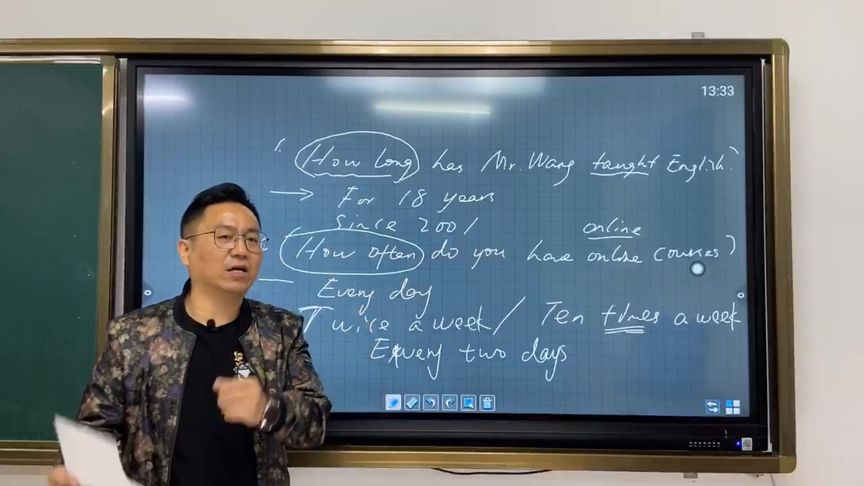 13:33
How long has Mr. Wang taught English?
→ For 18 years
since 2001
online
How often do you have online courses?
Every day
Twice a week / Ten times a week
Every two days